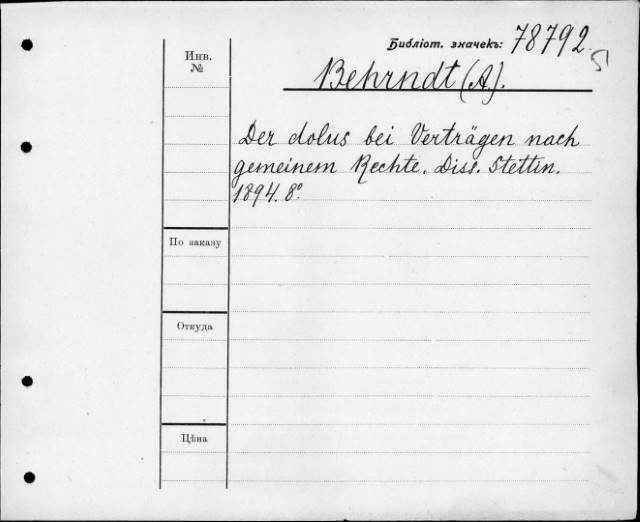 Библіот. значекъ: 78792
5
Инв.
№
Behrndt (A.).
Der dolus bei Verträgen nach
gemeinem Rechte. Diss. Stettin.
1894. 8º.
По заказу
Откуда
Цѣна